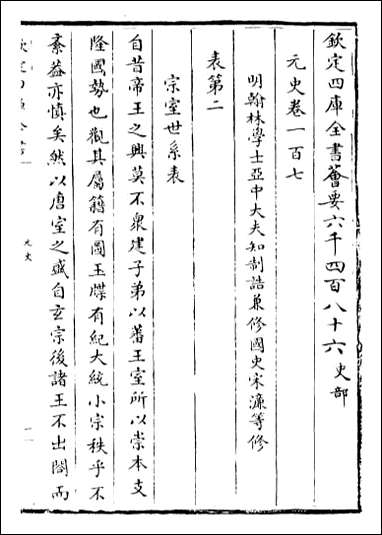 欽定四庫全書薈要六千四百八十六史部
元史卷一百七
明翰林學士亞中大夫知制誥兼修國史宋濂等修
表第二
宗室世系表
自昔帝王之興莫不衆建子弟以蕃王室所以崇本支
隆國勢也觀其屬籍有圖玉牒有紀大統小宗秩乎不
紊葢亦慎矣然以唐室之盛自玄宗後諸王不出閤而
欽定四庫全書
元史
一